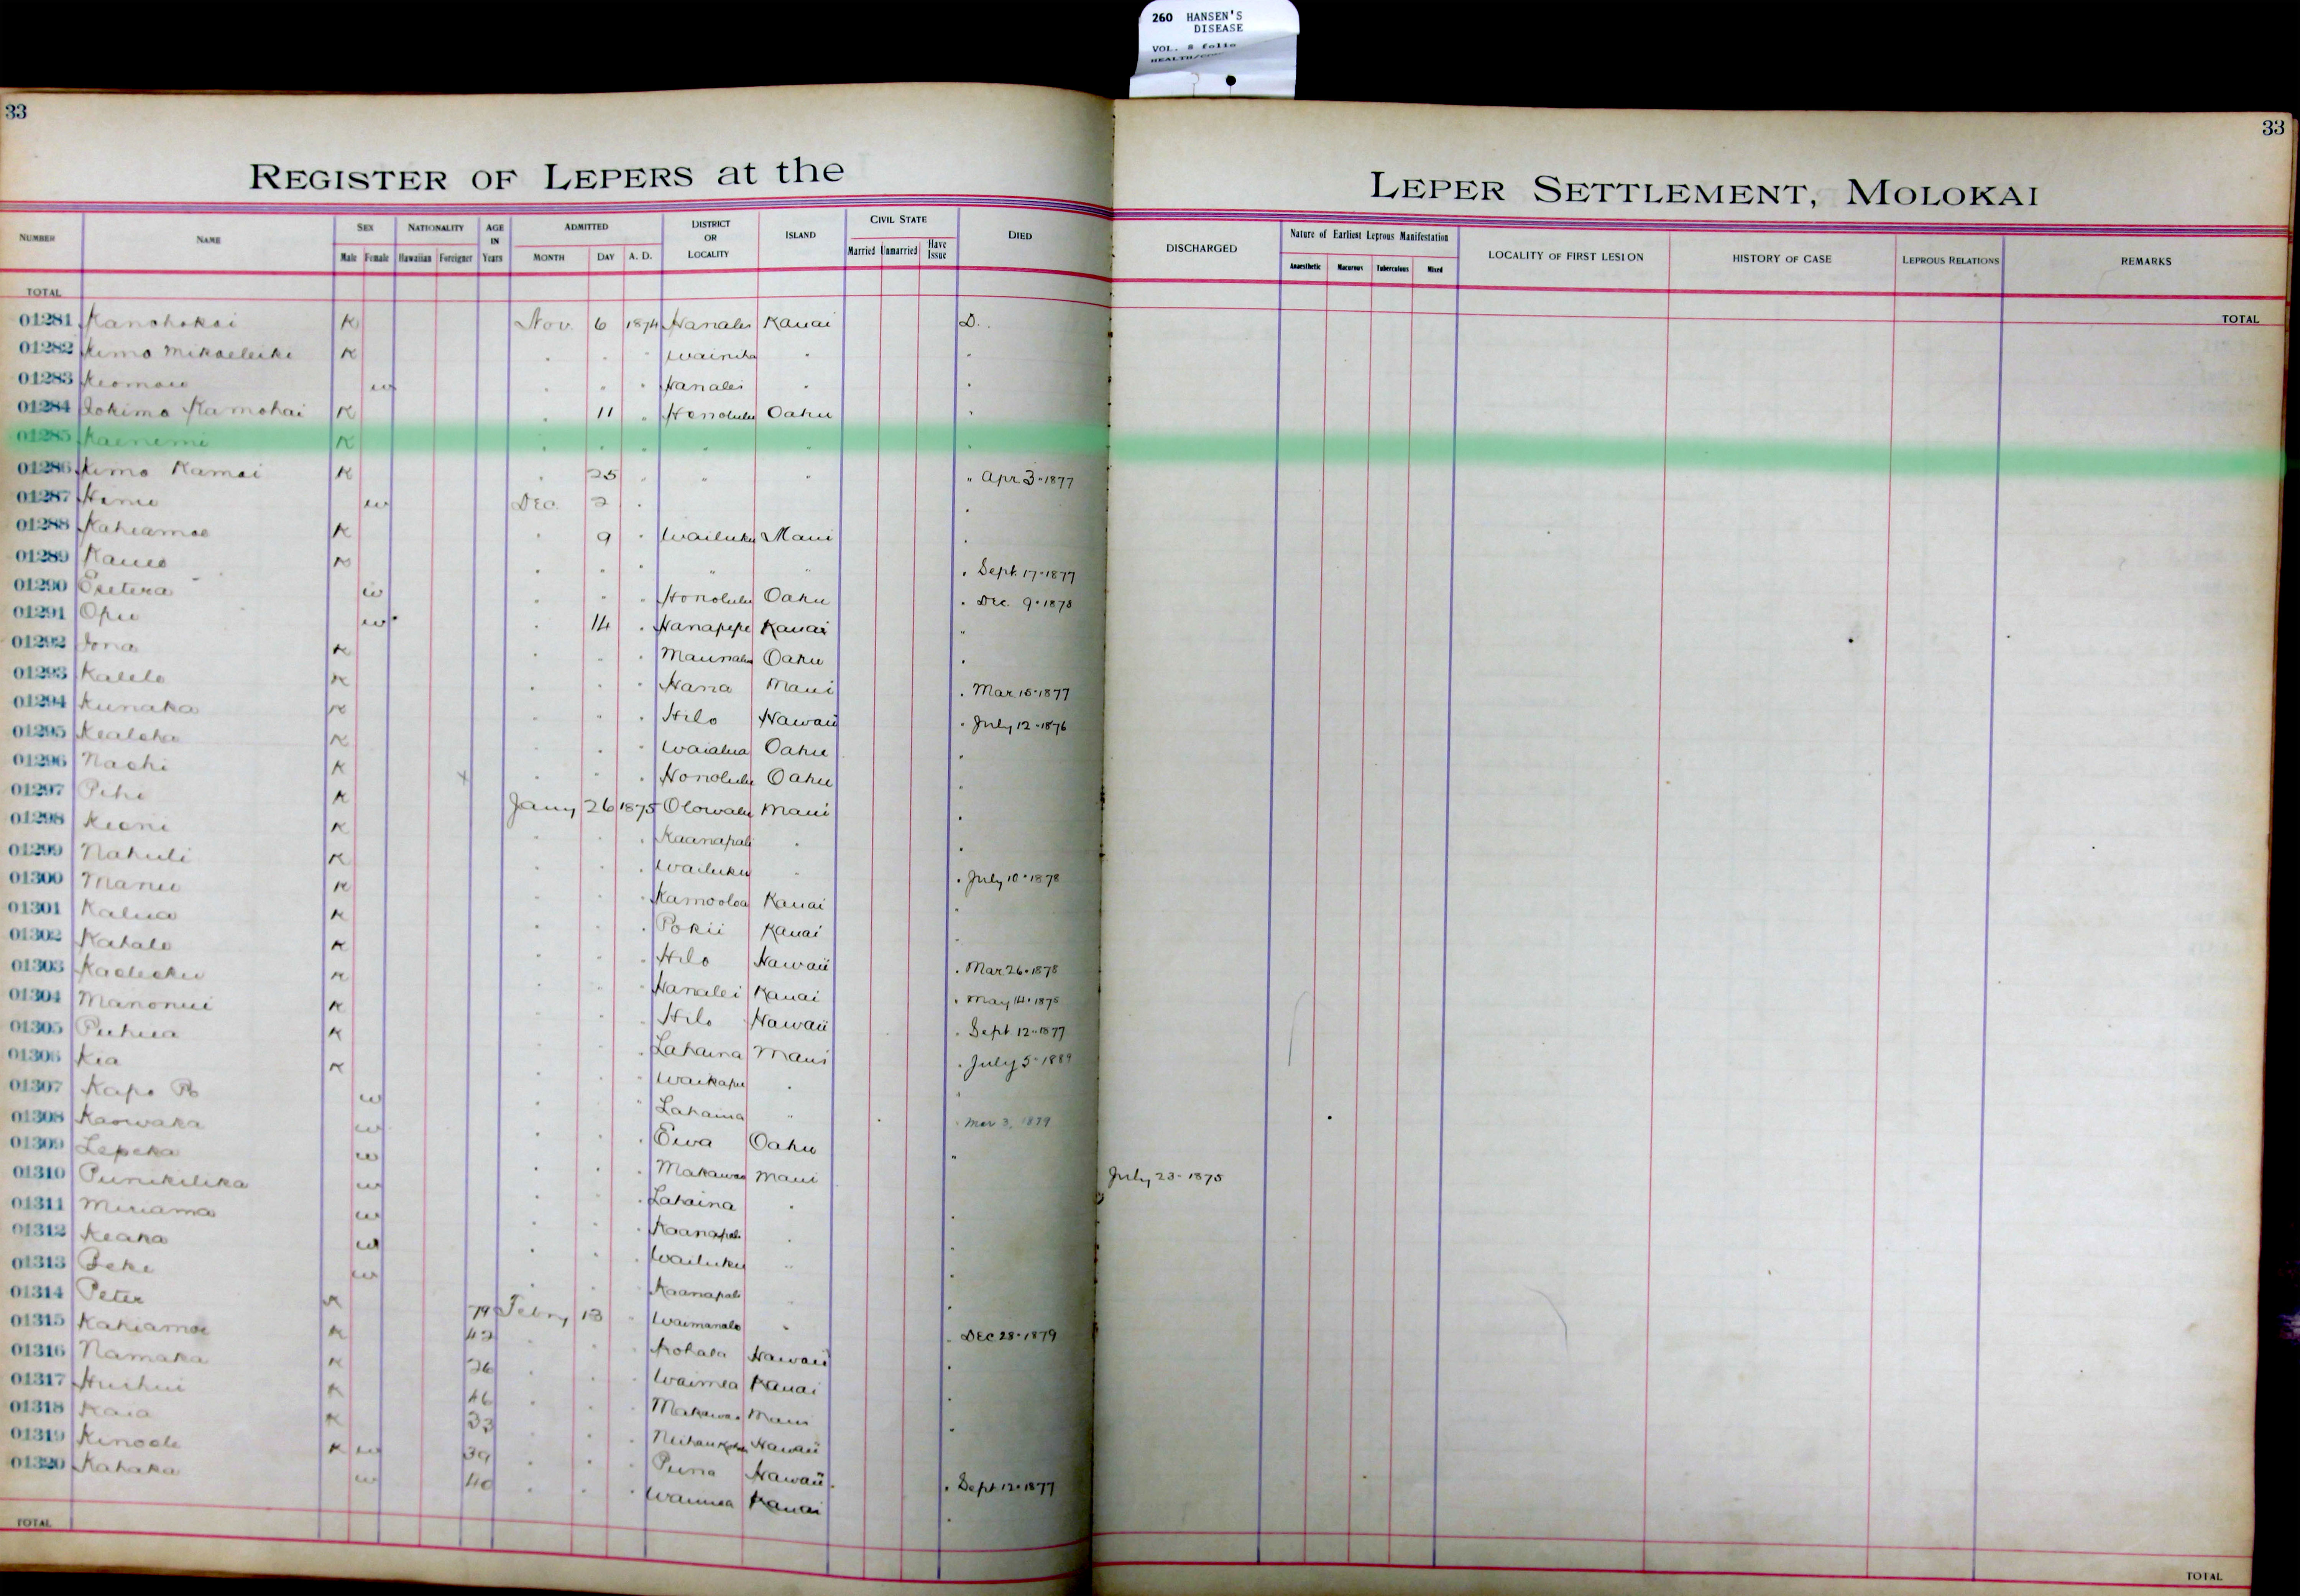 260 HANSEN'S
DISEASE
VOL. 8 folio
33
33
REGISTER OF LEPERS at the LEPER SETTLEMENT, MOLOKAI
NUMBER NAME SEX NATIONALITY AGE IN Years ADMITTED DISTRICT OR LOCALITY ISLAND CIVIL STATE DIED DISCHARGED Nature of Earliest Leprous Manifestation LOCALITY OF FIRST LESION HISTORY OF CASE LEPROUS RELATIONS REMARKS
Male Female Hawaiian Foreigner MONTH DAY A. D. Married Unmarried Have Issue Anaesthetic Macurous Tuberculous Mixed
TOTAL TOTAL
01281 Kanohokai K Nov. 6 1874 Hanalei Kauai D.
01282 Kimo Mikaeleike K " " " Wainiha " "
01283 Keomoio w " " " Hanalei " "
01284 Iokimo Kamohai K " 11 " Honolulu Oahu "
01285 Kainemi K " " " " " "
01286 Kimo Kamai K " 25 " " " " Apr 3-1877
01287 w Dec. 2 " "
01288 Kahiamoe K " 9 " Wailuku Maui "
01289 Kaueo K " " " " " " Sept. 17-1877
01290 w " " " Honolulu Oahu " Dec. 9-1878
01291 Opu w " 14 " Hanapepe Kauai "
01292 Iona K " " " Oahu "
01293 Kalelo K " " " Hana Maui " Mar 15-1877
01294 Kunaka K " " " Hilo Hawaii " July 12-1876
01295 Kealoha K " " " Waialua Oahu "
01296 Naohi K " " " Honolulu Oahu "
01297 Pihi K Jany 26 1875 Olowalu Maui "
01298 Keoni K " " " Kaanapali " "
01299 Nahuli K " " " Wailuku " " July 10-1878
01300 Manu K " " " Kamooloa Kauai "
01301 Kalua K " " " Pokii Kauai "
01302 Kahalo K " " " Hilo Hawaii " Mar 26-1878
01303 K " " " Hanalei Kauai " May 14-1875
01304 Manonui K " " " Hilo Hawaii " Sept 12-1877
01305 Puhua K " " " Lahaina Maui " July 5-1889
01306 Kia K " " " Waikapu " "
01307 Kapo w " " " Lahaina " " Mar 3, 1879
01308 Kaowaka w " " " Ewa Oahu "
01309 Lepeka w " " " Makawao Maui July 23-1875
01310 Punikilika w " " " Lahaina " "
01311 Miriama w " " " Kaanapali " "
01312 Keaka w " " " Wailuku " "
01313 Beke w " " " Kaanapali " "
01314 Peter K 79 Febry 13 " Waimanalo " " Dec 28-1879
01315 Kahiamoe K 42 " " " Kohala Hawaii "
01316 Namaka K 26 " " " Waimea Kauai "
01317 Huihui K 46 " " " Makawao Maui "
01318 Kaia K 33 " " " Hawaii
01319 Kinoole K w 39 " " " Puna Hawaii " Sept 12-1877
01320 Kahaka w 40 " " " Waimea Kauai "
TOTAL TOTAL